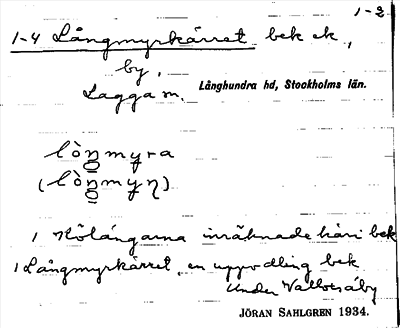 1-2
1-4 Långmyrkärret bek ek,
by,
Lagga sn.
Långhundra hd, Stockholms län.
lò̀ŋmyra
(lò̀ŋmyɳ)
1 Hölängarna inräknade häri bek
1 Långmyrkärret, en uppodling bek
Under Vallbyåby
JÖRAN SAHLGREN 1934.